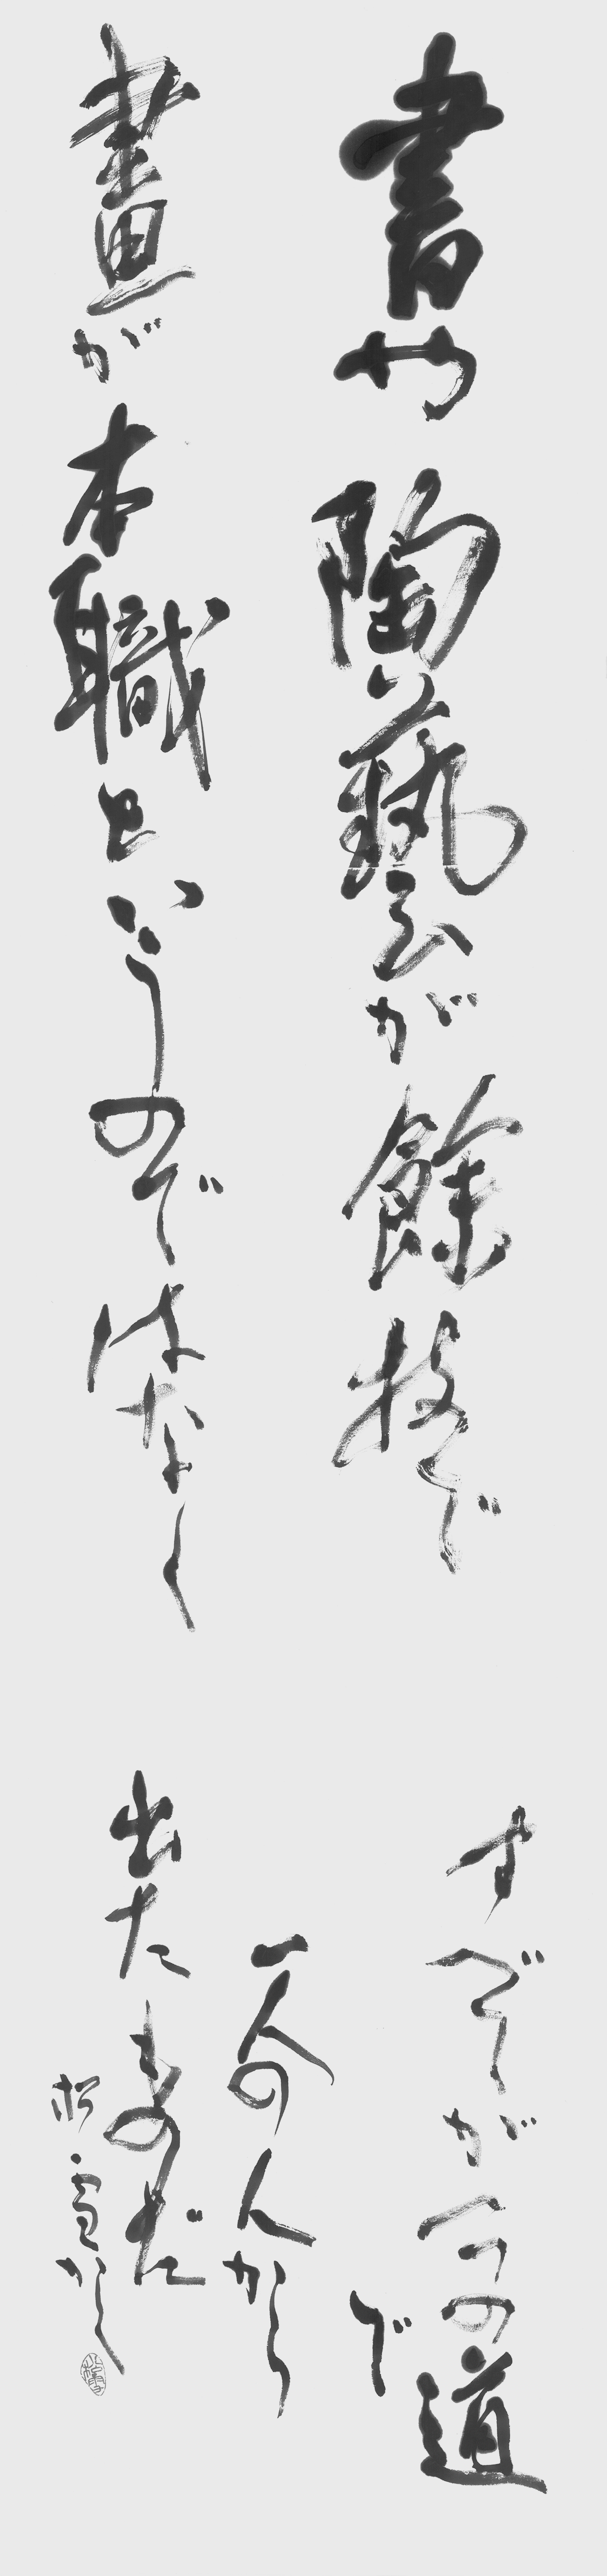 書や陶藝が餘技で
畫が本職といふのではなく
すべてが一つの道
で
一人の人から
出たものだ
松雪かく